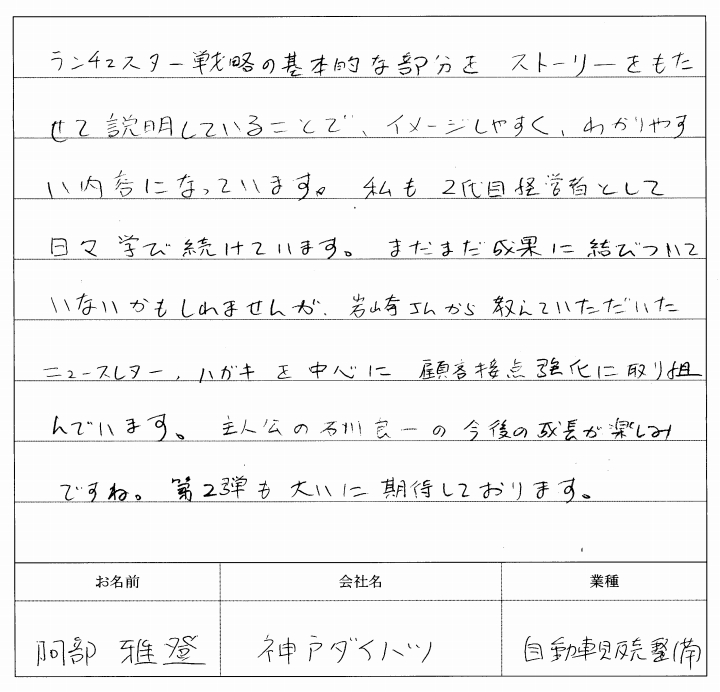 ランチェスター戦略の基本的な部分を ストーリーをもた
せて説明していることで、イメージしやすく、わかりやす
い内容になっています。私も 2代目経営者として
日々 学び続けています。まだまだ成果に結びついて
いないかもしれませんが、岩崎さんから 教えていただいた
ニュースレター、ハガキ を 中心に 顧客接点強化に取り組
んでいます。主人公の石川良一の今後の成長が楽しみ
ですね。第2弾も 大いに期待しております。
お名前 会社名 業種
阿部 雅登 神戸ダイハツ 自動車販売整備